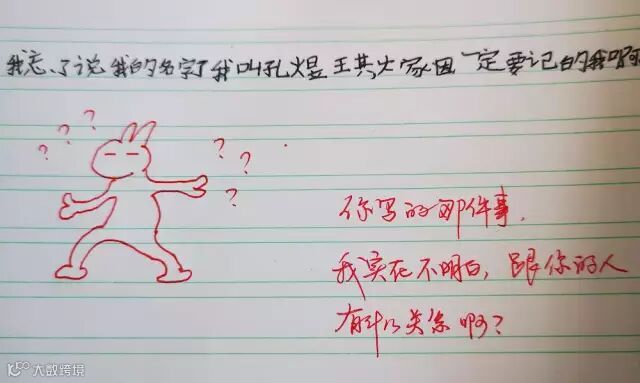 我忘了说我的名字了我叫孔煜王共大家因一定要记的我啊
? ? ?
? ? ?
你写的那件事,
我实在不明白,跟你的人
有什么关系啊?
大数跨境